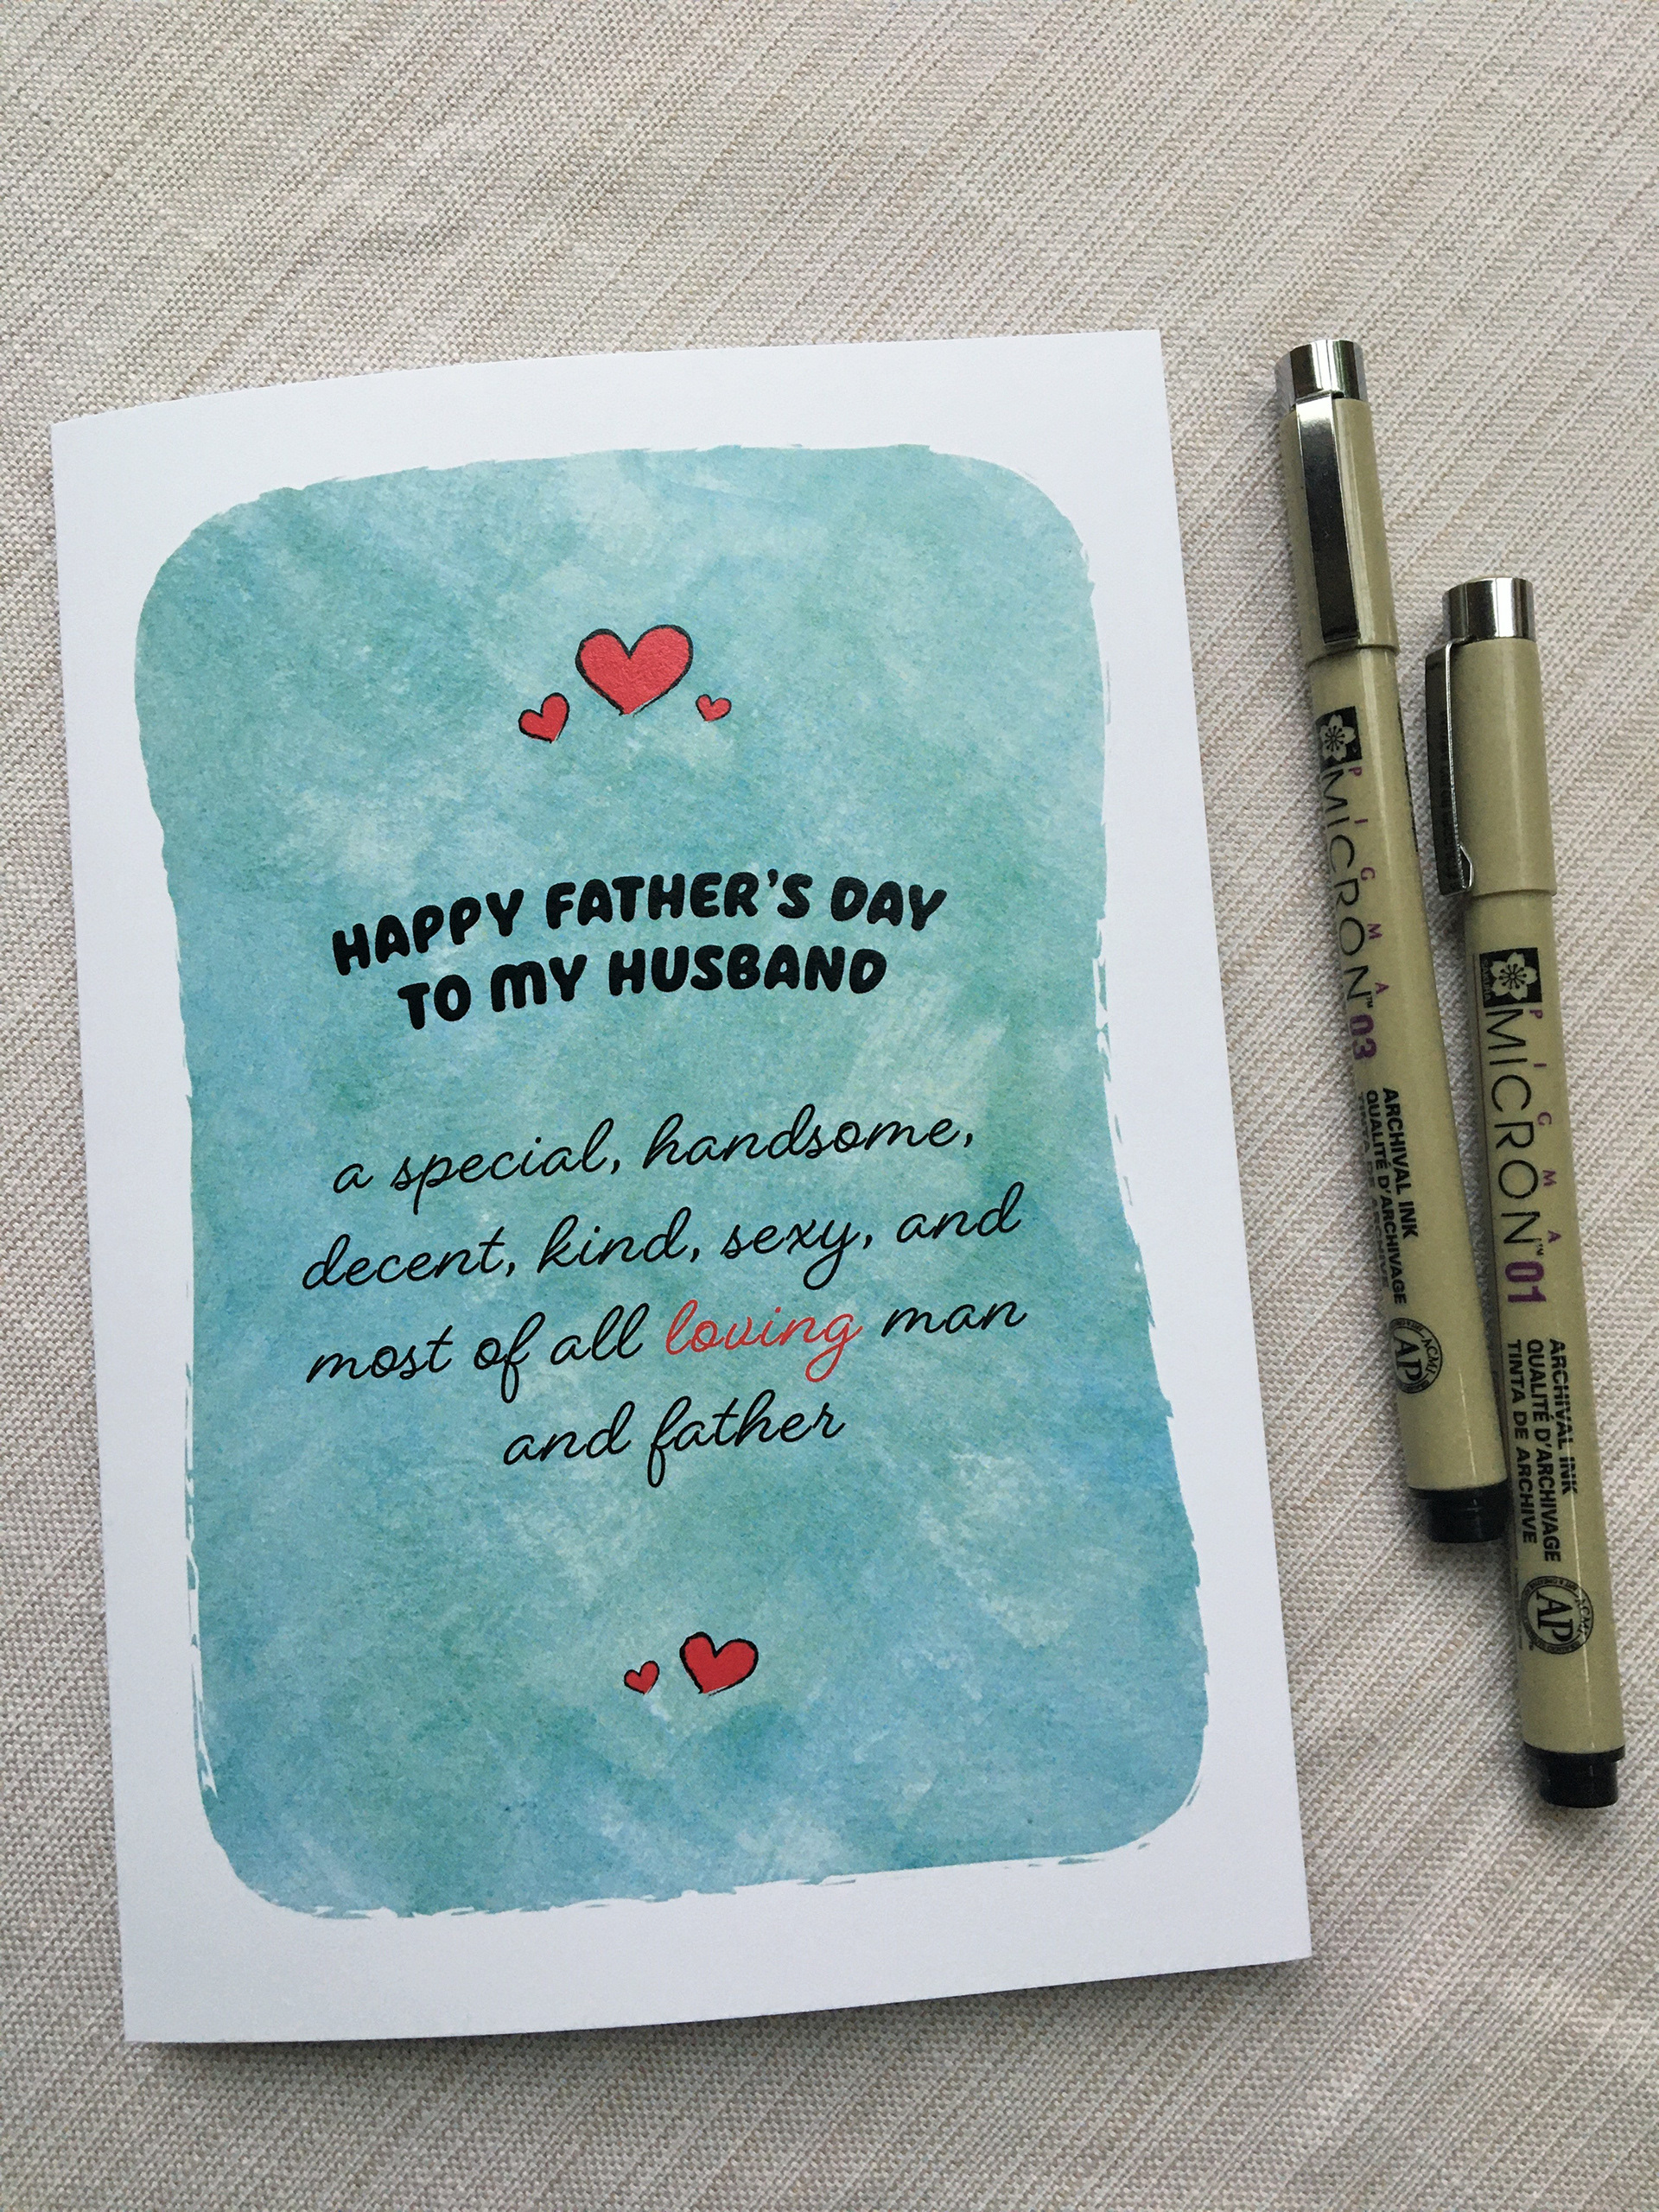 HAPPY FATHER'S DAY
TO MY HUSBAND
a special, handsome,
decent, kind, sexy, and
most of all loving man
and father
PIGMA
MICRON™ 03
ARCHIVAL INK
QUALITÉ D'ARCHIVAGE
TINTA DE ARCHIVE
ACMI
AP
PIGMA
MICRON™ 01
ARCHIVAL INK
QUALITÉ D'ARCHIVAGE
TINTA DE ARCHIVE
ACMI
AP